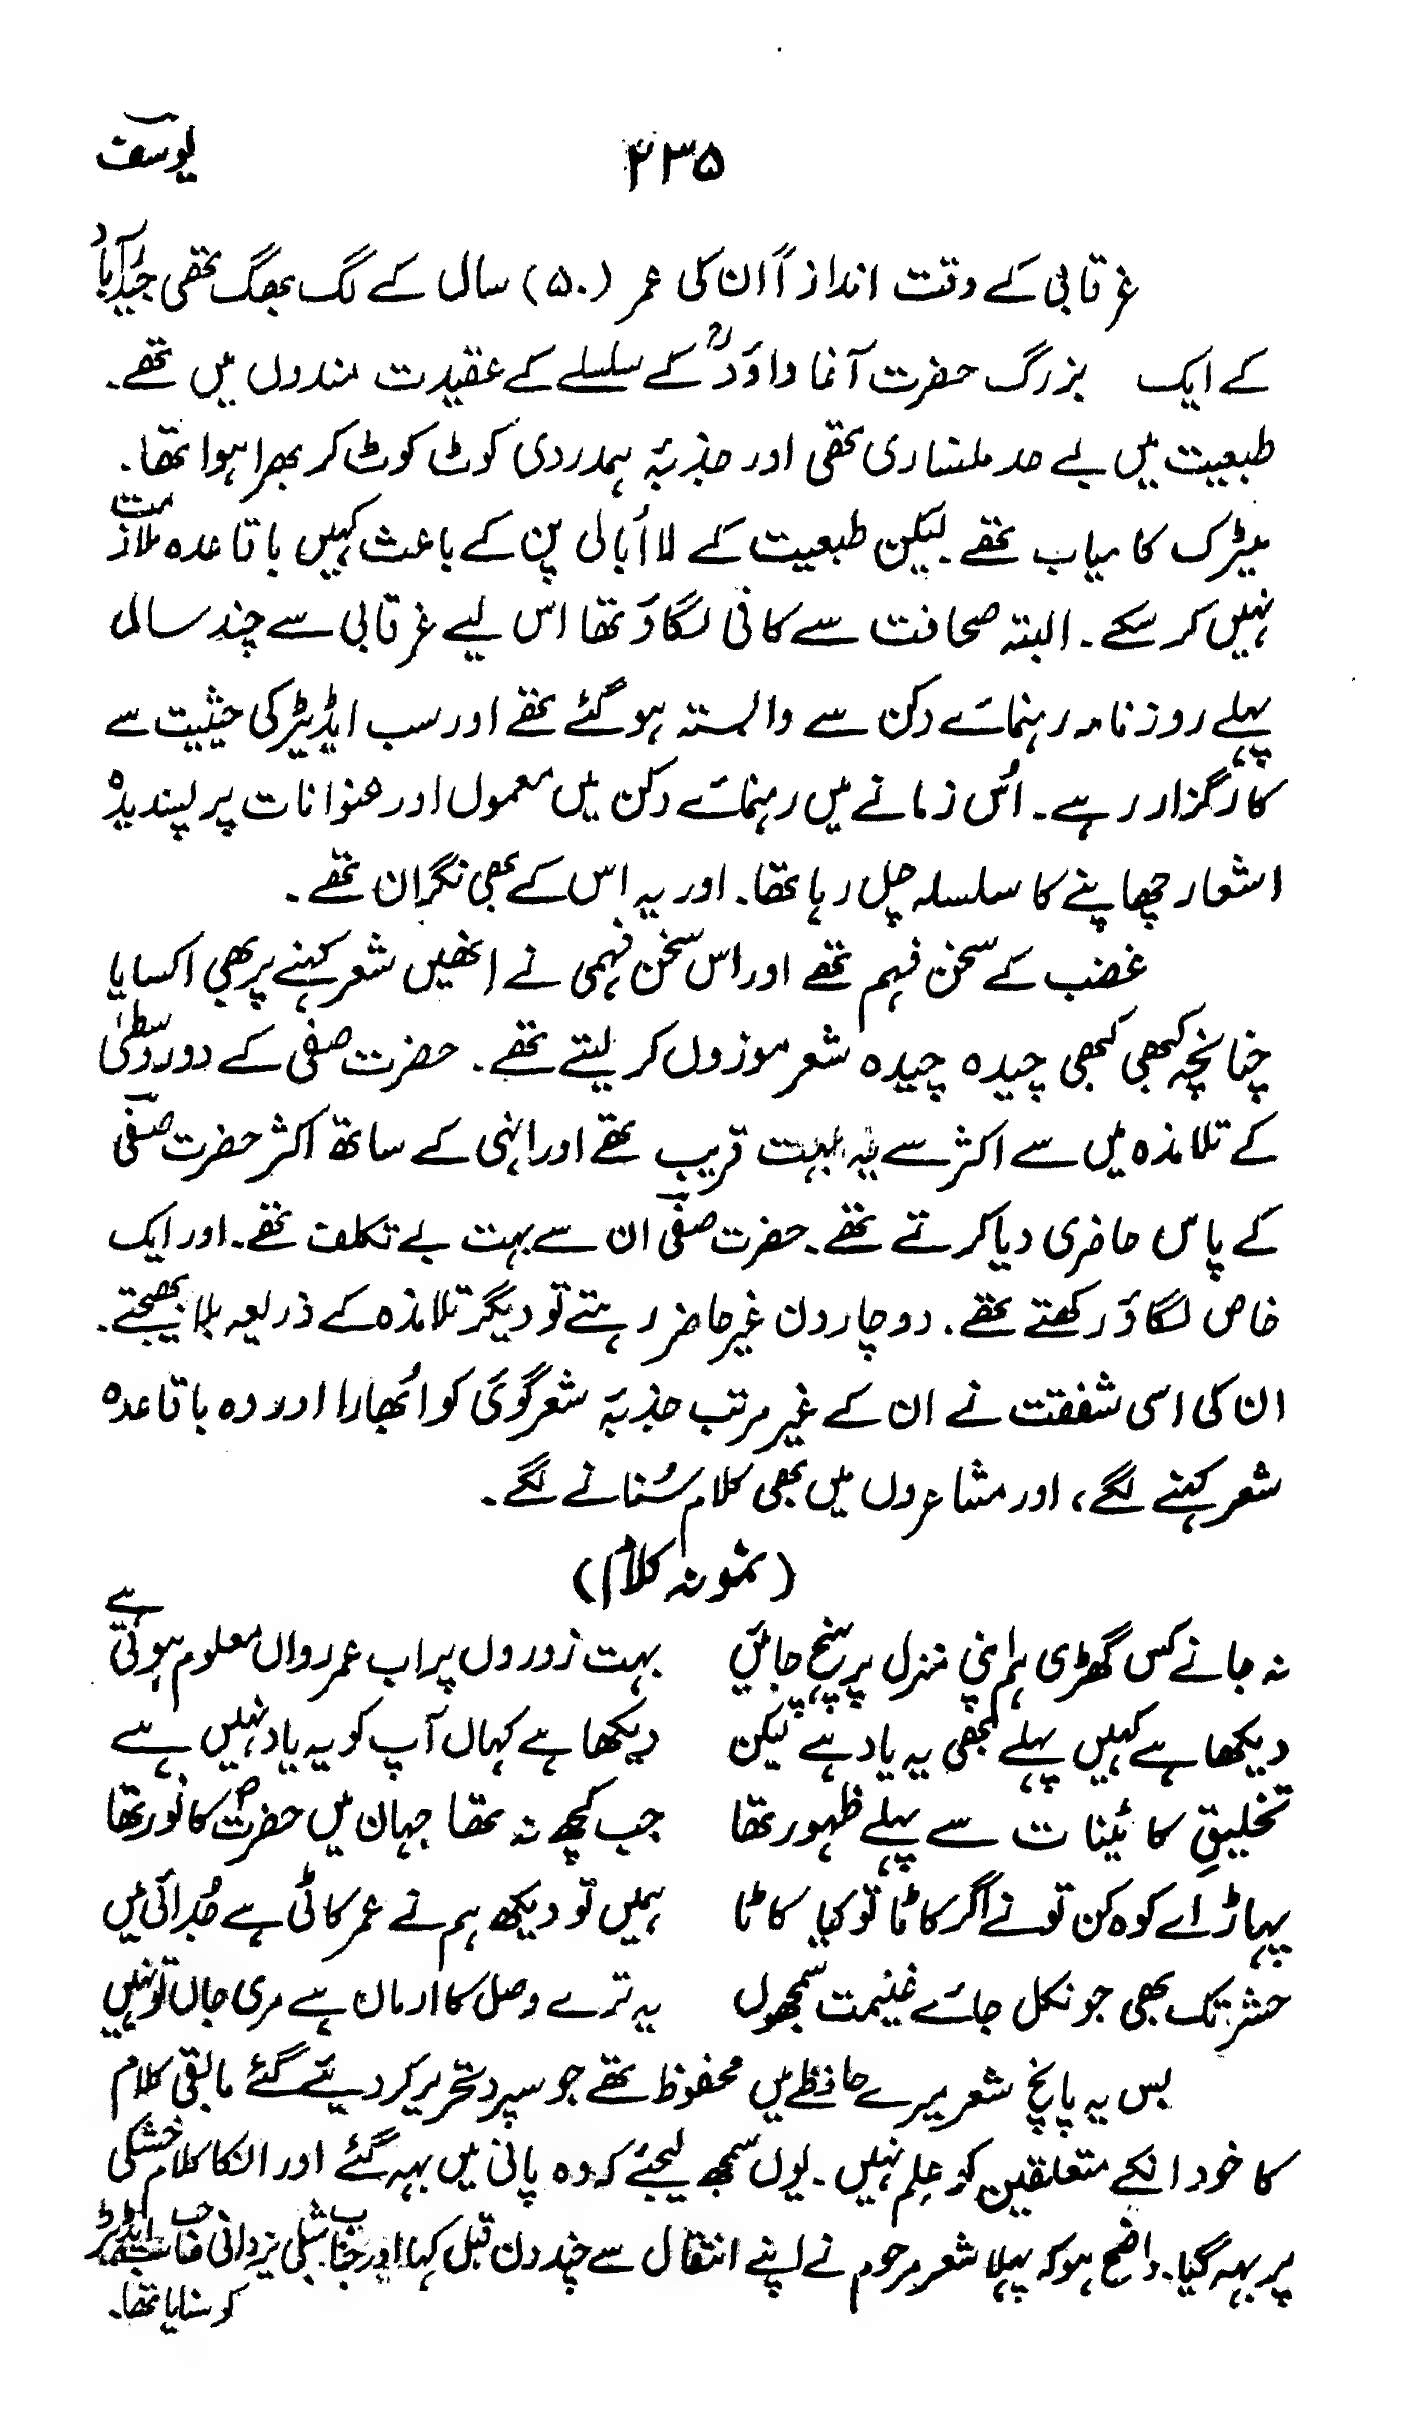 یوسف
۲۳۵
غرقابی کے وقت اندازاً ان کی عمر (۵۰) سال کے لگ بھگ تھی حیدرآباد
کے ایک بزرگ حضرت آغا داؤدؒ کے سلسلے کے عقیدت مندوں میں تھے۔
طبعیت میں بے حد ملنساری تھی اور جذبۂ ہمدردی کوٹ کوٹ کر بھرا ہوا تھا۔
میٹرک کامیاب تھے۔ لیکن طبعیت کے لااُبالی پن کے باعث کہیں باقاعدہ ملازمت
نہیں کر سکے۔ البتہ صحافت سے کافی لگاؤ تھا اس لیے غرقابی سے چند سال
پہلے روزنامہ رہنمائے دکن سے وابستہ ہو گئے تھے اور سب ایڈیٹر کی حیثیت سے
کارگزار رہے۔ اُس زمانے میں رہنمائے دکن میں معمول اور عنوانات پر پسندیدہ
اشعار چھاپنے کا سلسلہ چل رہا تھا۔ اور یہ اس کے بھی نگران تھے۔
غضب کے سخن فہم تھے اور اس سخن فہمی نے انھیں شعر کہنے پر بھی اکسایا
چنانچہ کبھی کبھی چیدہ چیدہ شعر موزوں کر لیتے تھے۔ حضرت صفی کے دور وسطیٰ
کے تلامذہ میں سے اکثر سے یہ بہت قریب تھے اور انہی کے ساتھ اکثر حضرت صفی
کے پاس حاضری دیا کرتے تھے۔ حضرت صفی ان سے بہت بے تکلف تھے۔ اور ایک
خاص لگاؤ رکھتے تھے۔ دو چار دن غیر حاضر رہتے تو دیگر تلامذہ کے ذریعہ بلا بھیجتے۔
ان کی اسی شفقت نے ان کے غیر مرتب جذبۂ شعر گوئی کو اُبھارا اور وہ باقاعدہ
شعر کہنے لگے، اور مشاعروں میں بھی کلام سُنانے لگے۔
(نمونہ کلام)
نہ جانے کس گھڑی ہم اپنی منزل پر پہنچ جائیں بہت زوروں پر اب عمر رواں معلوم ہوتی ہے
دیکھا ہے کہیں پہلے کبھی یہ یاد ہے لیکن دیکھا ہے کہاں آپ کو یہ یاد نہیں ہے
تخلیقِ کائینات سے پہلے ظہور تھا جب کچھ نہ تھا جہان میں حضرتؐ کا نُور تھا
پہاڑ اے کوہ کن تو نے اگر کاٹا تو کیا کاٹا ہمیں تو دیکھ ہم نے عمر کاٹی ہے جُدائی میں
حشر تک بھی جو نکل جائے غنیمت سمجھوں یہ ترے وصل کا ارمان ہے مری جاں تو نہیں
بس یہ پانچ شعر میرے حافظے میں محفوظ تھے جو سپرد تحریر کر دیئے گئے مابقی کلام
کا خود انکے متعلقین کو علم نہیں۔ یوں سمجھ لیجئے کہ وہ پانی میں بہہ گئے اور انکا کلام خشکی
پر بہہ گیا۔ واضح ہو کہ پہلا شعر مرحوم نے اپنے انتقال سے چند دن قبل کہا اور جناب شبلی یزدانی صاحب ایڈیٹر
کو سنایا تھا۔